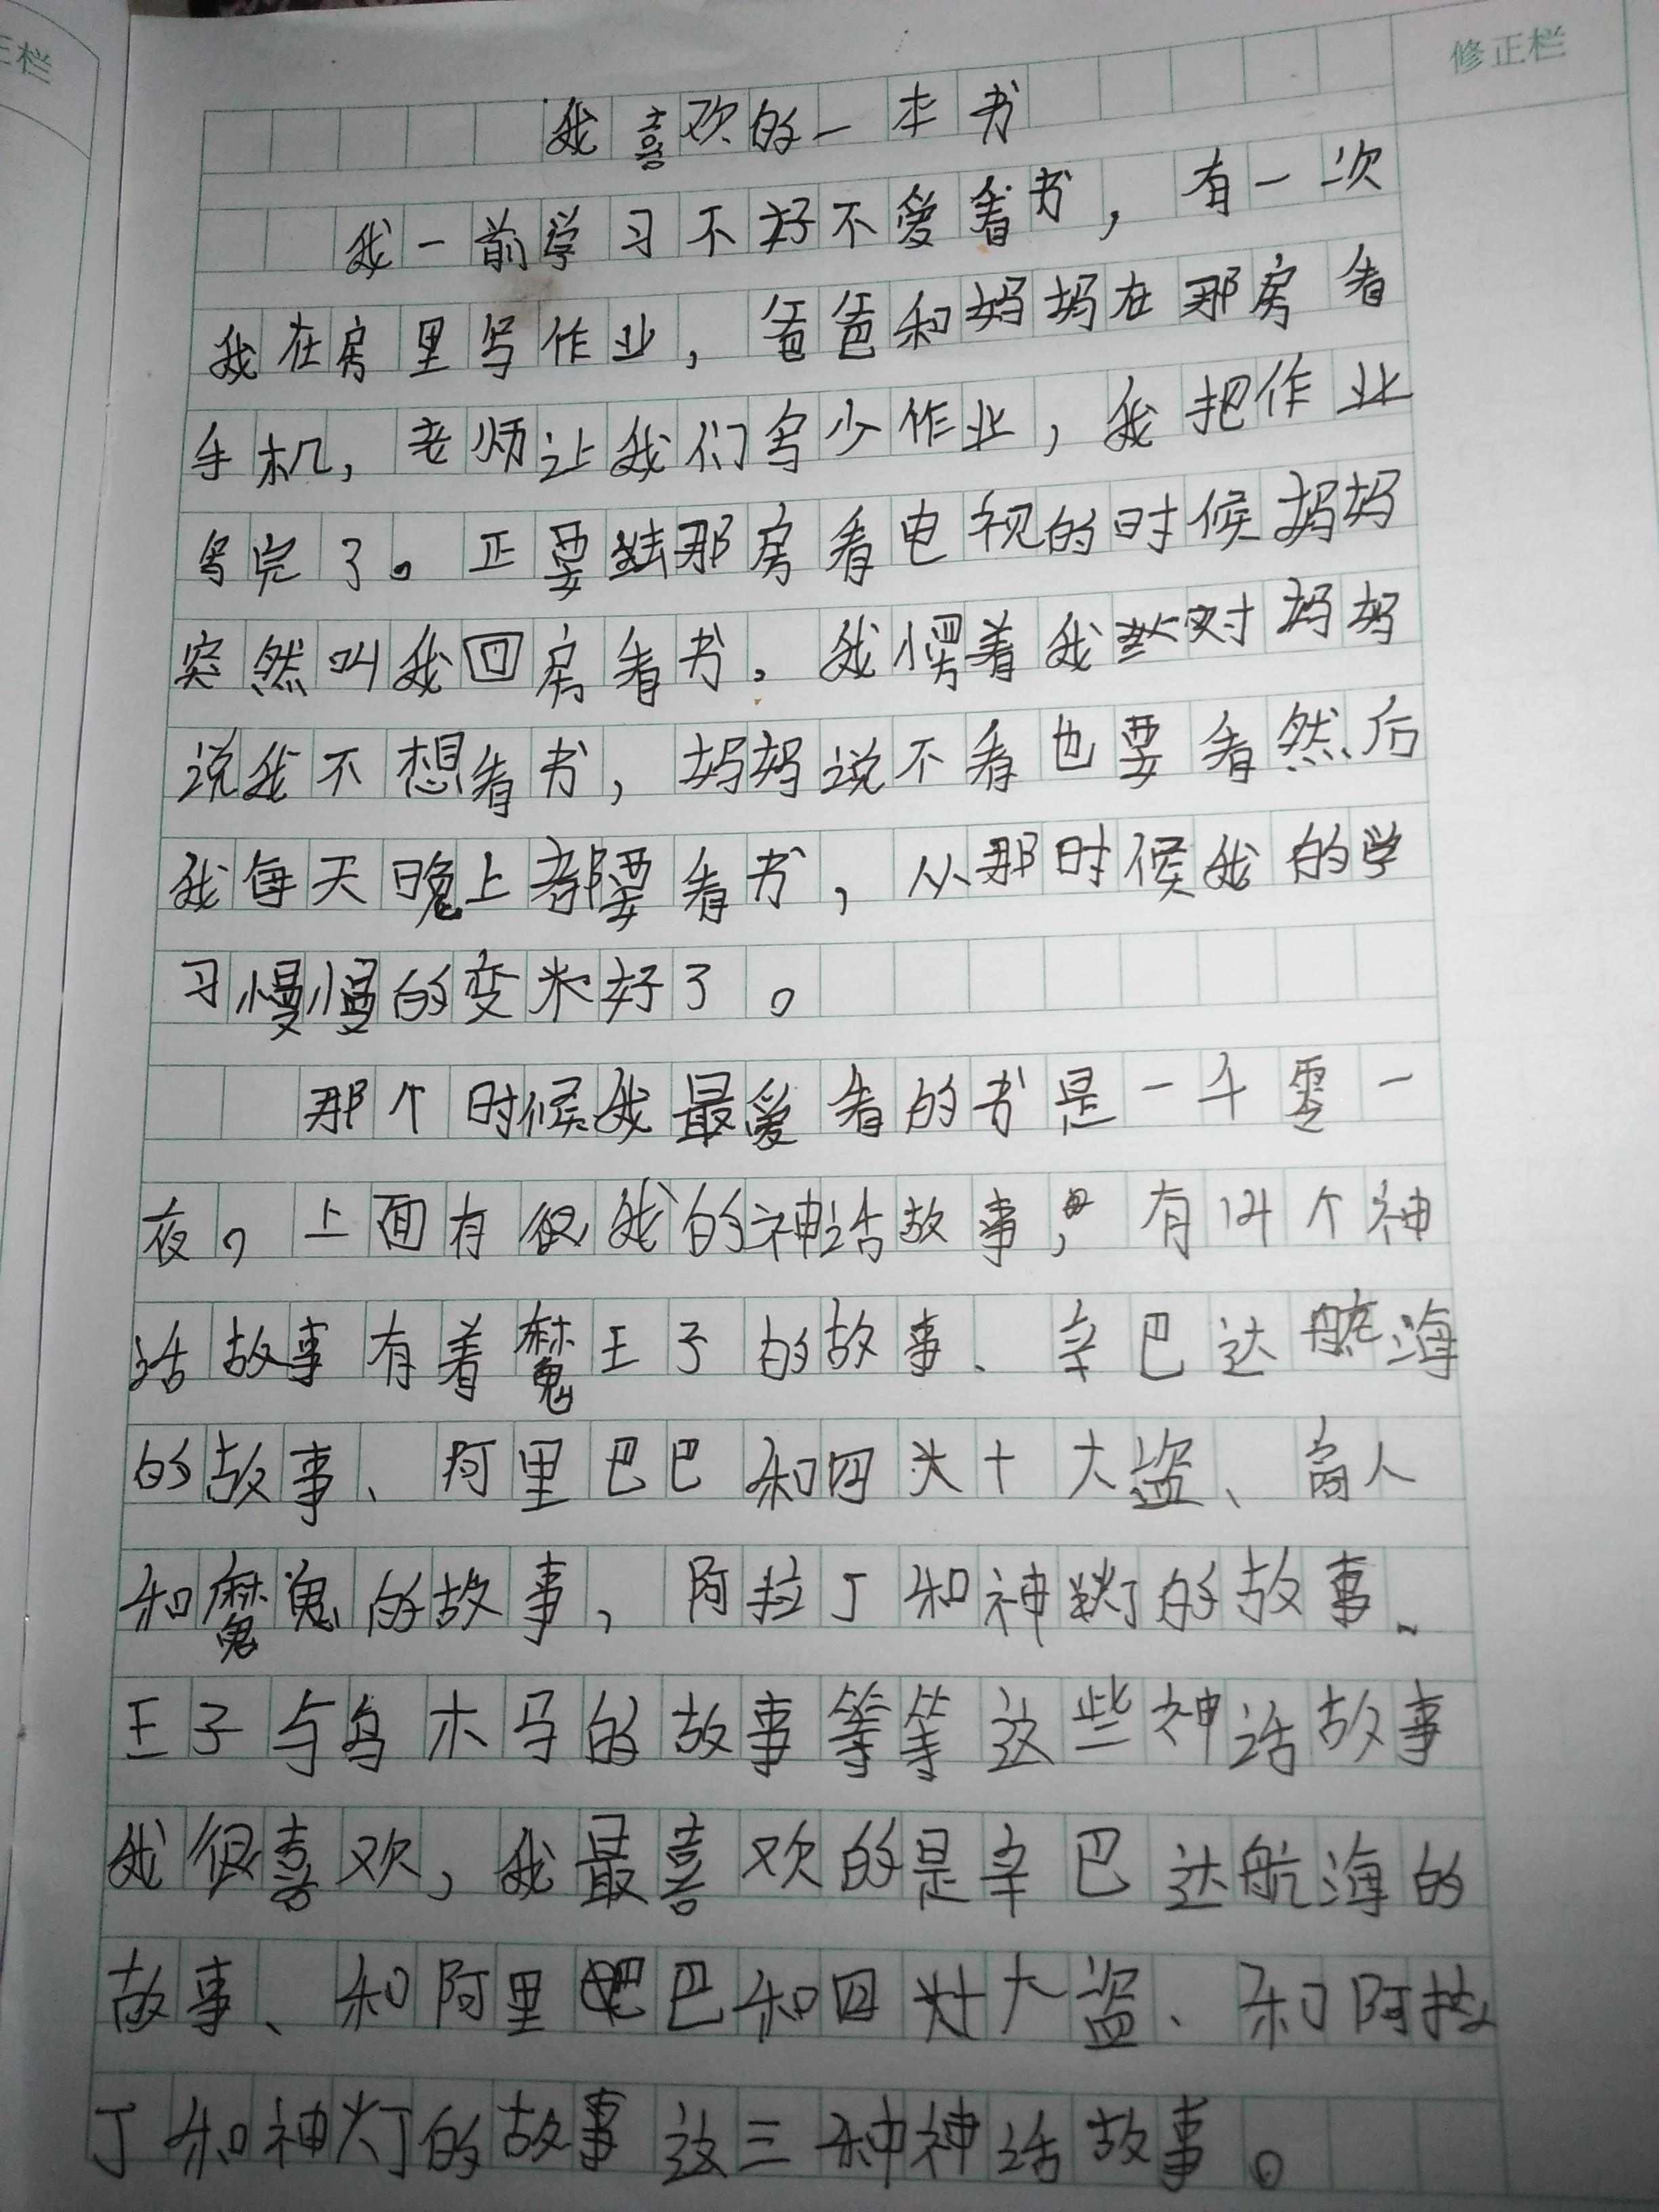 正栏
修正栏
我喜欢的一本书
我一前学习不好不爱看书，有一次
我在房里写作业，爸爸和妈妈在那房看
手机，老师让我们写少作业，我把作业
写完了。正要去那房看电视的时候妈妈
突然叫我回房看书。我愣着我对妈妈
说我不想看书，妈妈说不看也要看然后
我每天晚上都要看书，从那时候我的学
习慢慢的变来好了。
那个时候我最爱看的书是一千零一
夜，上面有很我的神话故事，有叫个神
话故事有着魔王子的故事、辛巴达航海
的故事、阿里巴巴和四头十大盗、商人
和魔鬼的故事，阿拉丁和神灯的故事、
王子与乌木马的故事等等这些神话故事
我很喜欢，我最喜欢的是辛巴达航海的
故事、和阿里巴巴和四大盗、和阿拉
丁和神灯的故事这三种神话故事。